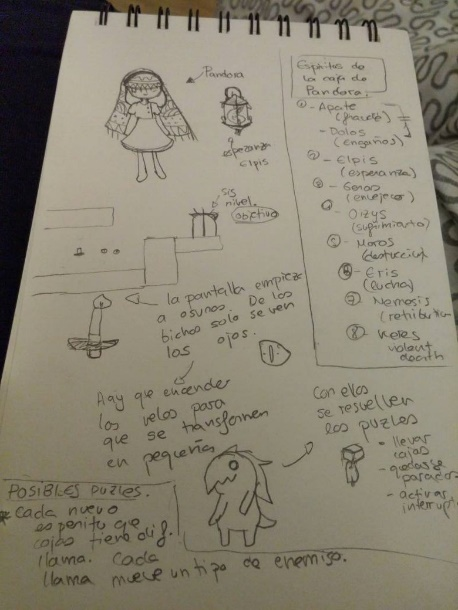 Pandora
esperanza
Elpis
sig nivel.
objetivo
Espíritus de
la caja de
Pandora:
① - Apate
(fraude)
- Dolos
(engaños)
② - Elpis
(esperanza)
③ - Geras
(envejecer)
④ - Oizys
(sufrimiento)
⑤ - Moros
(destrucción)
⑥ - Eris
(lucha)
⑦ - Nemesis
⑧ - Keres
violent
death
la pantalla empieza
a oscuras. De los
bichos solo se ven
los ojos.
Hay que encender
las velas para
que se transformen
en pequeños
con ellos
se resuelven
los puzles
- llevar
cajas
- quedarse
parados
- activar
POSIBLES PUZLES.
* Cada nuevo
espiritu que
cojas tiene dif.
llama. Cada
llama mueve un tipo de enemigo.